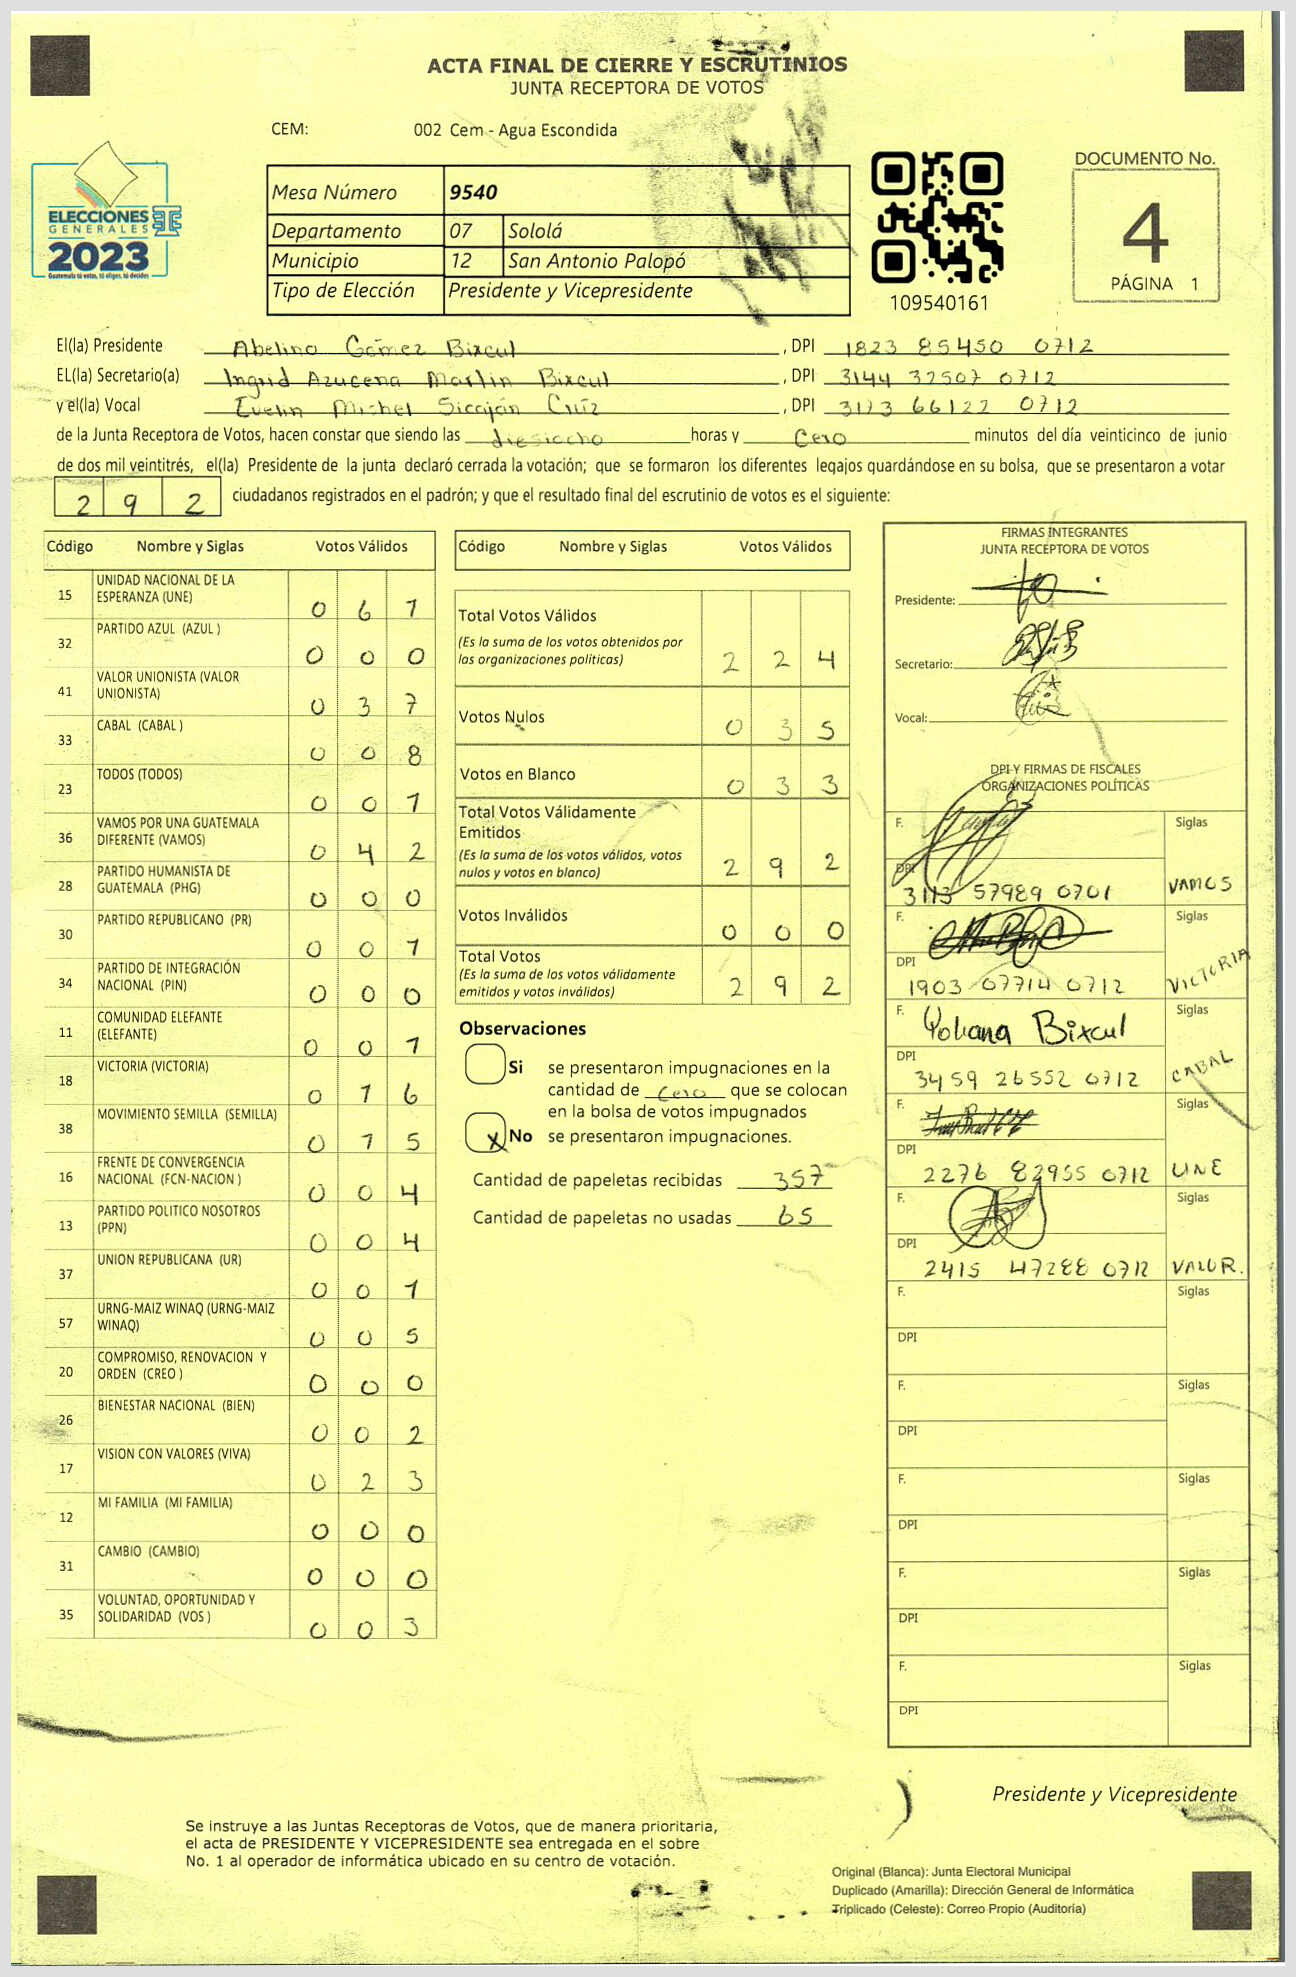 ACTA FINAL DE CIERRE Y ESCRUTINIOS
JUNTA RECEPTORA DE VOTOS
CEM: 002 Cem - Agua Escondida
ELECCIONES
GENERALES
2023
Guatemala tú votas, tú eliges, tú decides
Mesa Número 9540
Departamento 07 Sololá
Municipio 12 San Antonio Palopó
Tipo de Elección Presidente y Vicepresidente
109540161
DOCUMENTO No.
4
PÁGINA 1
El(la) Presidente Abelino Gómez Bixcul, DPI 1823 85450 0712
EL(la) Secretario(a) Ingrid Azucena Martin Bixcul, DPI 3144 37507 0712
y el(la) Vocal Evelin Mishel Sicaján Cruz, DPI 3173 66122 0712
de la Junta Receptora de Votos, hacen constar que siendo las diesiocho horas y Cero minutos del día veinticinco de junio
de dos mil veintitrés, el(la) Presidente de la junta declaró cerrada la votación; que se formaron los diferentes legajos guardándose en su bolsa, que se presentaron a votar
2 9 2 ciudadanos registrados en el padrón; y que el resultado final del escrutinio de votos es el siguiente:
Código Nombre y Siglas Votos Válidos
15 UNIDAD NACIONAL DE LA ESPERANZA (UNE) 0 6 1
32 PARTIDO AZUL (AZUL ) 0 0 0
41 VALOR UNIONISTA (VALOR UNIONISTA) 0 3 7
33 CABAL (CABAL ) 0 0 8
23 TODOS (TODOS) 0 0 1
36 VAMOS POR UNA GUATEMALA DIFERENTE (VAMOS) 0 4 2
28 PARTIDO HUMANISTA DE GUATEMALA (PHG) 0 0 0
30 PARTIDO REPUBLICANO (PR) 0 0 1
34 PARTIDO DE INTEGRACIÓN NACIONAL (PIN) 0 0 0
11 COMUNIDAD ELEFANTE (ELEFANTE) 0 0 1
18 VICTORIA (VICTORIA) 0 1 6
38 MOVIMIENTO SEMILLA (SEMILLA) 0 1 5
16 FRENTE DE CONVERGENCIA NACIONAL (FCN-NACION ) 0 0 4
13 PARTIDO POLITICO NOSOTROS (PPN) 0 0 4
37 UNION REPUBLICANA (UR) 0 0 1
57 URNG-MAIZ WINAQ (URNG-MAIZ WINAQ) 0 0 5
20 COMPROMISO, RENOVACION Y ORDEN (CREO ) 0 0 0
26 BIENESTAR NACIONAL (BIEN) 0 0 2
17 VISION CON VALORES (VIVA) 0 2 3
12 MI FAMILIA (MI FAMILIA) 0 0 0
31 CAMBIO (CAMBIO) 0 0 0
35 VOLUNTAD, OPORTUNIDAD Y SOLIDARIDAD (VOS ) 0 0 3
Código Nombre y Siglas Votos Válidos
Total Votos Válidos
(Es la suma de los votos obtenidos por
las organizaciones políticas) 2 2 4
Votos Nulos 0 3 5
Votos en Blanco 0 3 3
Total Votos Válidamente
Emitidos
(Es la suma de los votos válidos, votos
nulos y votos en blanco) 2 9 2
Votos Inválidos 0 0 0
Total Votos
(Es la suma de los votos válidamente
emitidos y votos inválidos) 2 9 2
Observaciones
Si se presentaron impugnaciones en la
cantidad de cero que se colocan
en la bolsa de votos impugnados
X No se presentaron impugnaciones.
Cantidad de papeletas recibidas 357
Cantidad de papeletas no usadas 65
FIRMAS INTEGRANTES
JUNTA RECEPTORA DE VOTOS
Presidente:
Secretario:
Vocal:
DPI Y FIRMAS DE FISCALES
ORGANIZACIONES POLÍTICAS
F. Siglas
DPI 3113 57989 0701 VAMOS
F. Siglas
DPI 1903 07714 0712 VICTORIA
F. Yohana Bixcul Siglas
DPI 3459 26552 0712 CABAL
F. Siglas
DPI 2276 82955 0712 UNE
F. Siglas
DPI 2415 47288 0712 VALOR.
F. Siglas
DPI
F. Siglas
DPI
F. Siglas
DPI
F. Siglas
DPI
F. Siglas
DPI
Presidente y Vicepresidente
Se instruye a las Juntas Receptoras de Votos, que de manera prioritaria,
el acta de PRESIDENTE Y VICEPRESIDENTE sea entregada en el sobre
No. 1 al operador de informática ubicado en su centro de votación.
Original (Blanca): Junta Electoral Municipal
Duplicado (Amarilla): Dirección General de Informática
Triplicado (Celeste): Correo Propio (Auditoría)